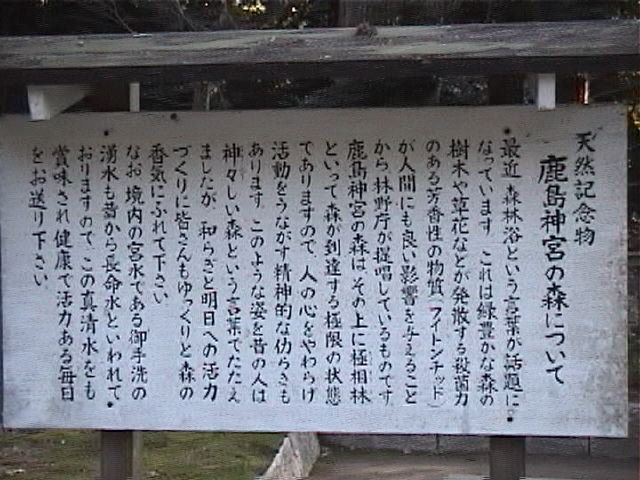 天然記念物
鹿島神宮の森について
最近 森林浴という言葉が話題に
なっています これは緑豊かな森の
樹木や草花などが発散する殺菌力
のある芳香性の物質(フイトンチッド)
が人間にも良い影響を与えること
から林野庁が提唱しているものです
鹿島神宮の森は その上に極相林
といって森が到達する極限の状態
でありますので、人の心をやわらげ
活動をうながす精神的な仂らきも
あります このような姿を昔の人は
神々しい森という言葉でたたえ
ましたが 和らぎと明日への活力
づくりに皆さんもゆっくりと森の
香気にふれて下さい
なお 境内の宮水である御手洗の
湧水も昔から長命水といわれて
おりますので、この真清水をも
賞味され 健康で活力ある毎日
をお送り下さい